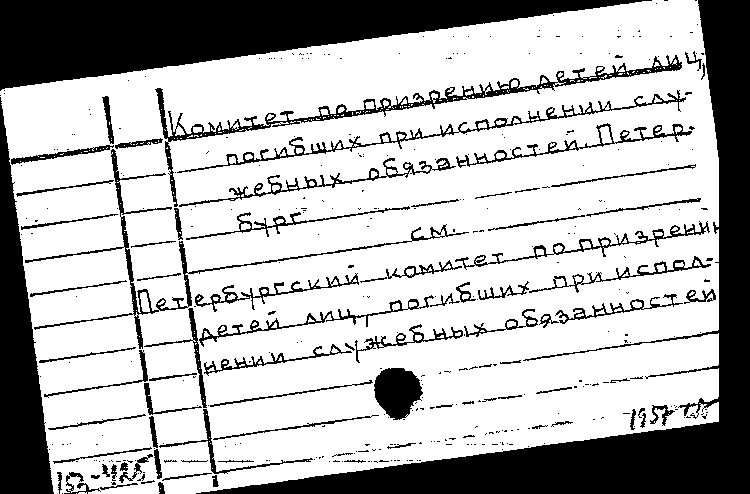 Комитет по призрению детей лиц,
погибших при исполнении слу-
жебных обязанностей. Петер-
бург
см.
Петербургский комитет по призрению
детей лиц, погибших при испол-
нении служебных обязанностей
1957